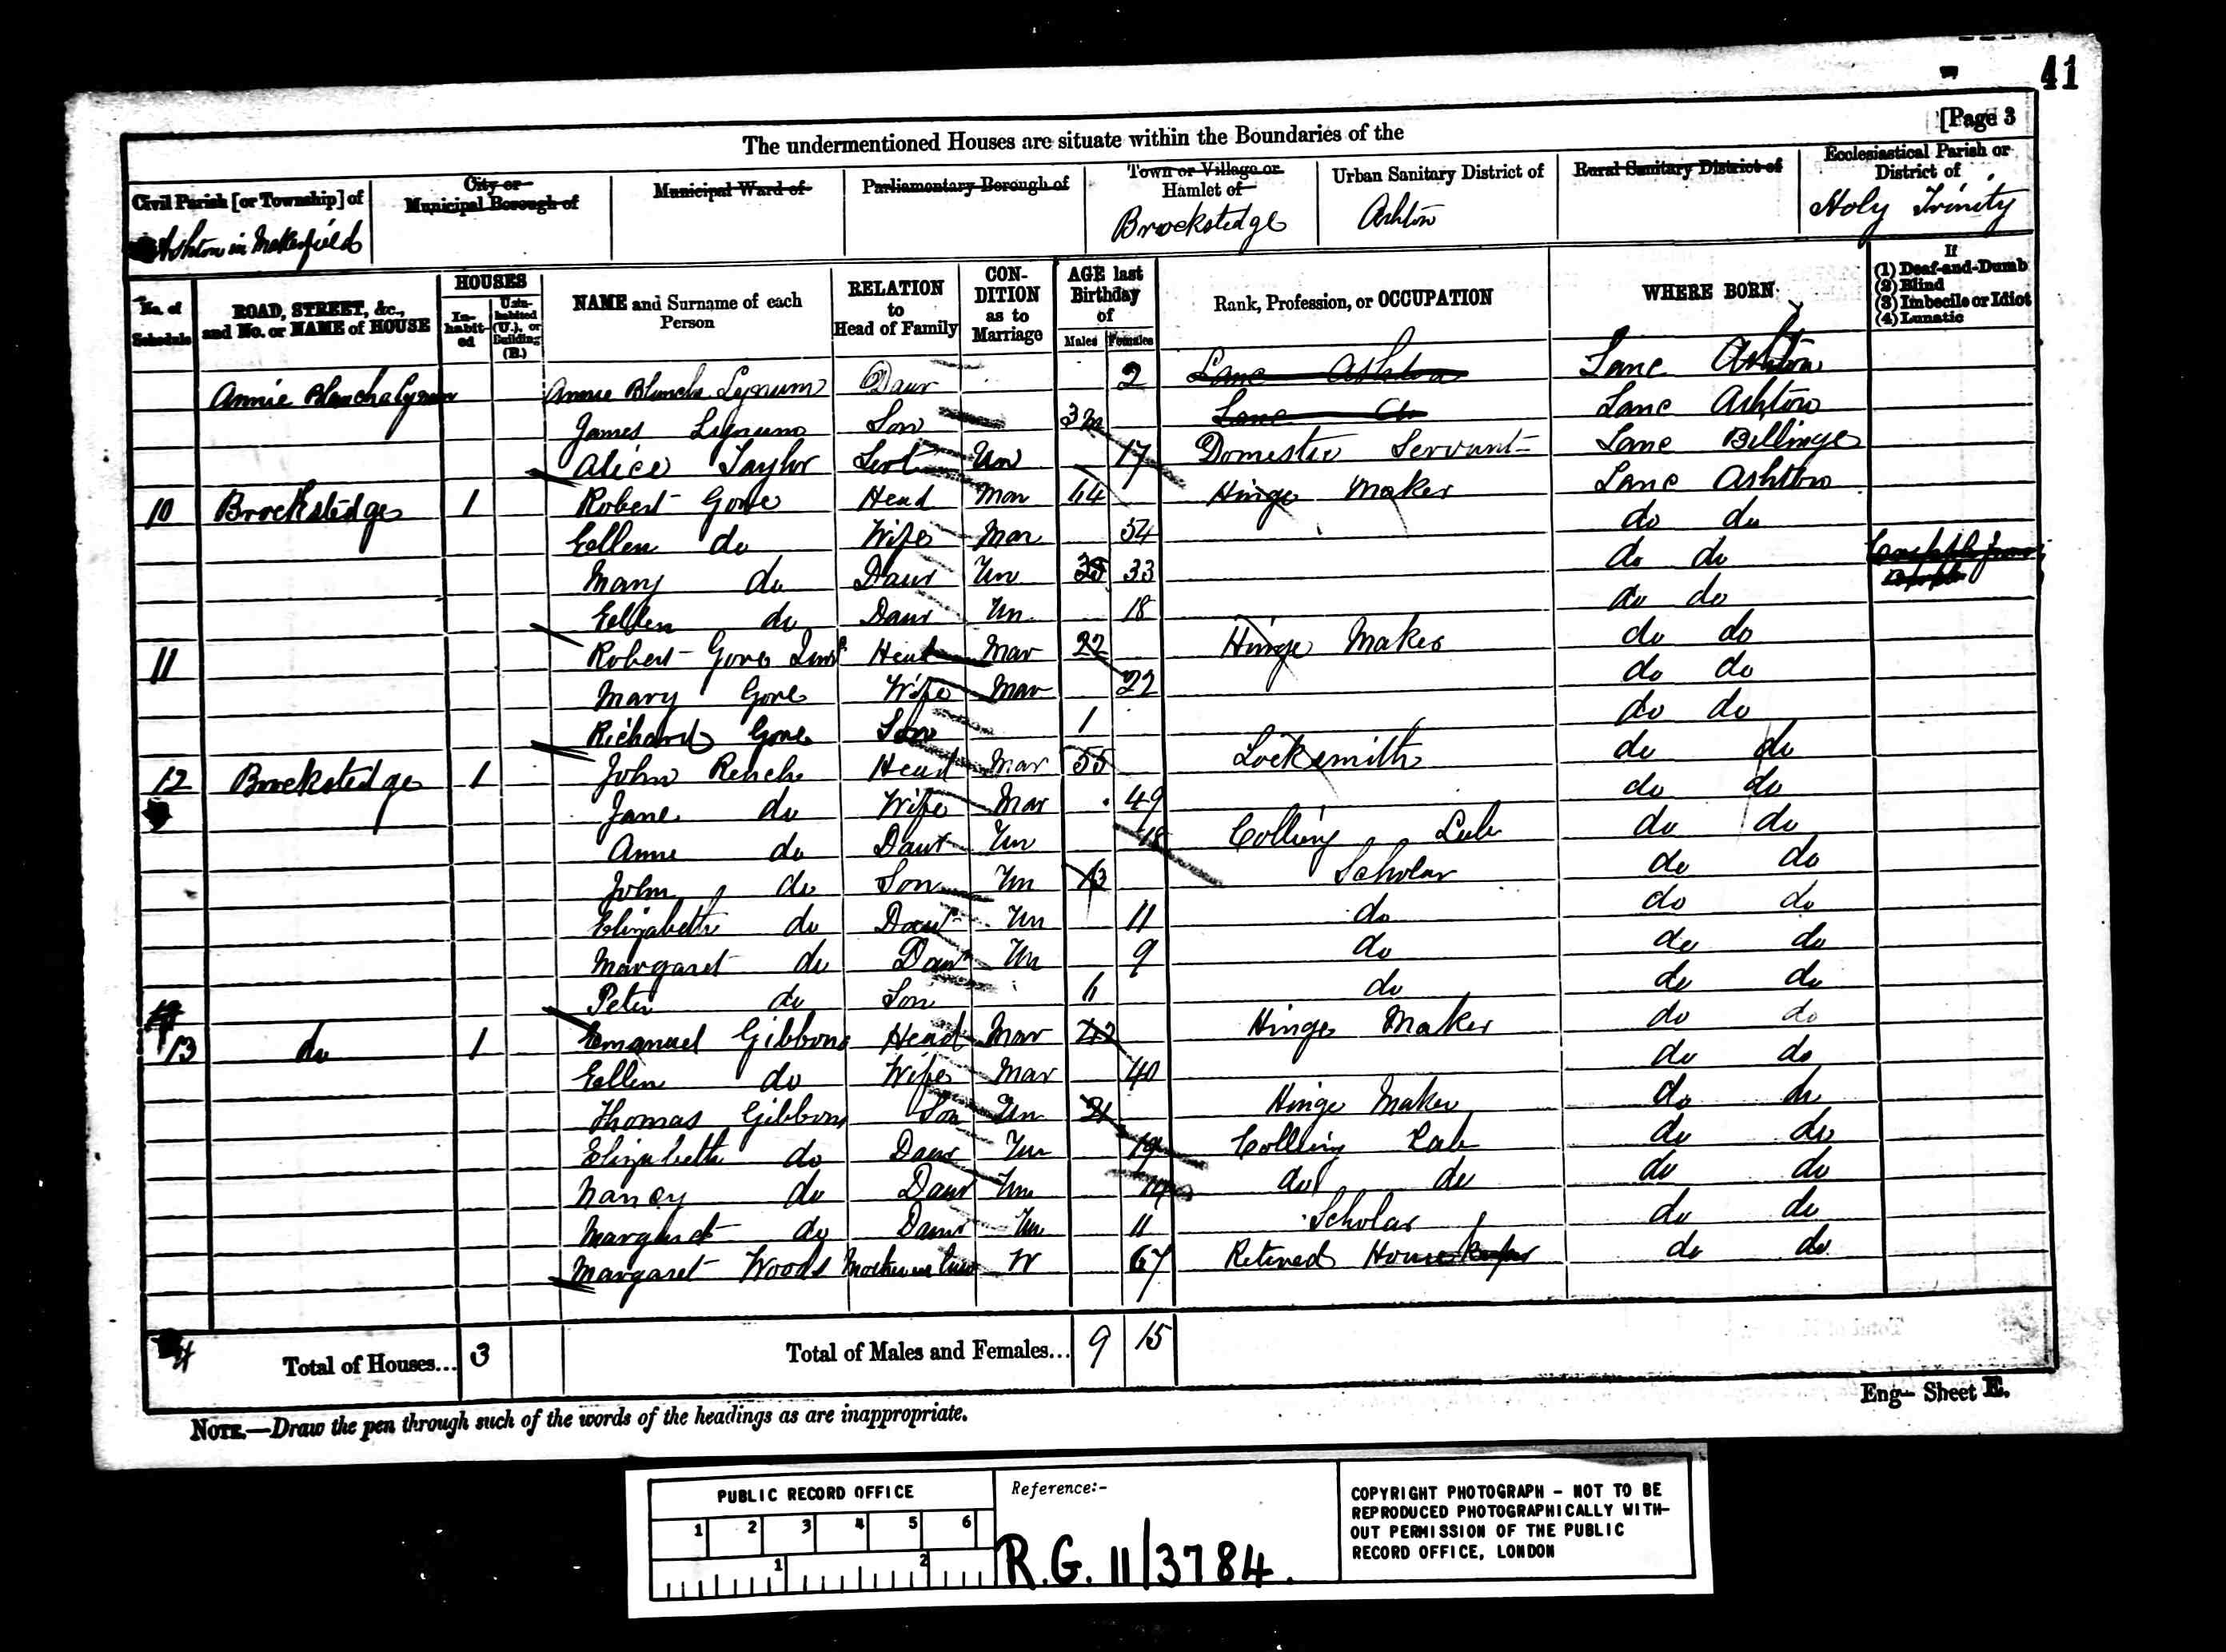 41
[Page 3
The undermentioned Houses are situate within the Boundaries of the
Civil Parish [or Township] of
City or Municipal Borough of
Municipal Ward of
Parliamentary Borough of
Town or Village or Hamlet of
Urban Sanitary District of
Rural Sanitary District of
Ecclesiastical Parish or District of
Ashton in Makerfield
Brockstedge
Ashton
Holy Trinity
No. of Schedule
ROAD, STREET, &c., and No. or NAME of HOUSE
HOUSES
In-habit-ed
Unin-habited (U.), or Building (B.)
NAME and Surname of each Person
RELATION to Head of Family
CON-DITION as to Marriage
AGE last Birthday of
Males
Females
Rank, Profession, or OCCUPATION
WHERE BORN
If
(1) Deaf-and-Dumb
(2) Blind
(3) Imbecile or Idiot
(4) Lunatic
Annie Blancha Annie Blancha Daur 2 Lanc Ashton Lanc Ashton
James Son 3m Lanc Lanc Ashton
Alice Taylor Servt Un 17 Domestic Servant Lanc Billinge
10 Brockstedge 1 Robert Gore Head Mar Hinge Maker Lanc Ashton
Ellen do Wife Mar 54 do do
Mary do Daur Un 33 do do
Ellen do Daur Un 18 do do
11 Robert Gore Head Mar 22 Hinge Maker do do
Mary Gore Wife Mar 22 do do
Richard Gore Son 1 do do
12 Brockstedge 1 John Head Mar 55 Locksmith do do
Jane do Wife Mar 49 do do
Anne do Daur Un 18 do do
John do Son Un 13 Scholar do do
Elizabeth do Daur Un 11 do do do
Margaret do Daur Un 9 do do do
Peter do Son 6 do do do
13 do 1 Emanuel Gibbons Head Mar 42 Hinge Maker do do
Ellen do Wife Mar 40 do do
Thomas Gibbons Son Un 21 Hinge Maker do do
Elizabeth do Daur Un 19 do do
Nancy do Daur Un do do do do
Margaret do Daur Un 11 Scholar do do
Margaret Woods Mother in law W 67 Retired Housekeeper do do
4 Total of Houses... 3 Total of Males and Females... 9 15
NOTE.—Draw the pen through such of the words of the headings as are inappropriate.
Eng— Sheet E.
PUBLIC RECORD OFFICE
1 2 3 4 5 6
1 2
Reference:-
R.G. 11/3784.
COPYRIGHT PHOTOGRAPH - NOT TO BE
REPRODUCED PHOTOGRAPHICALLY WITH-
OUT PERMISSION OF THE PUBLIC
RECORD OFFICE, LONDON